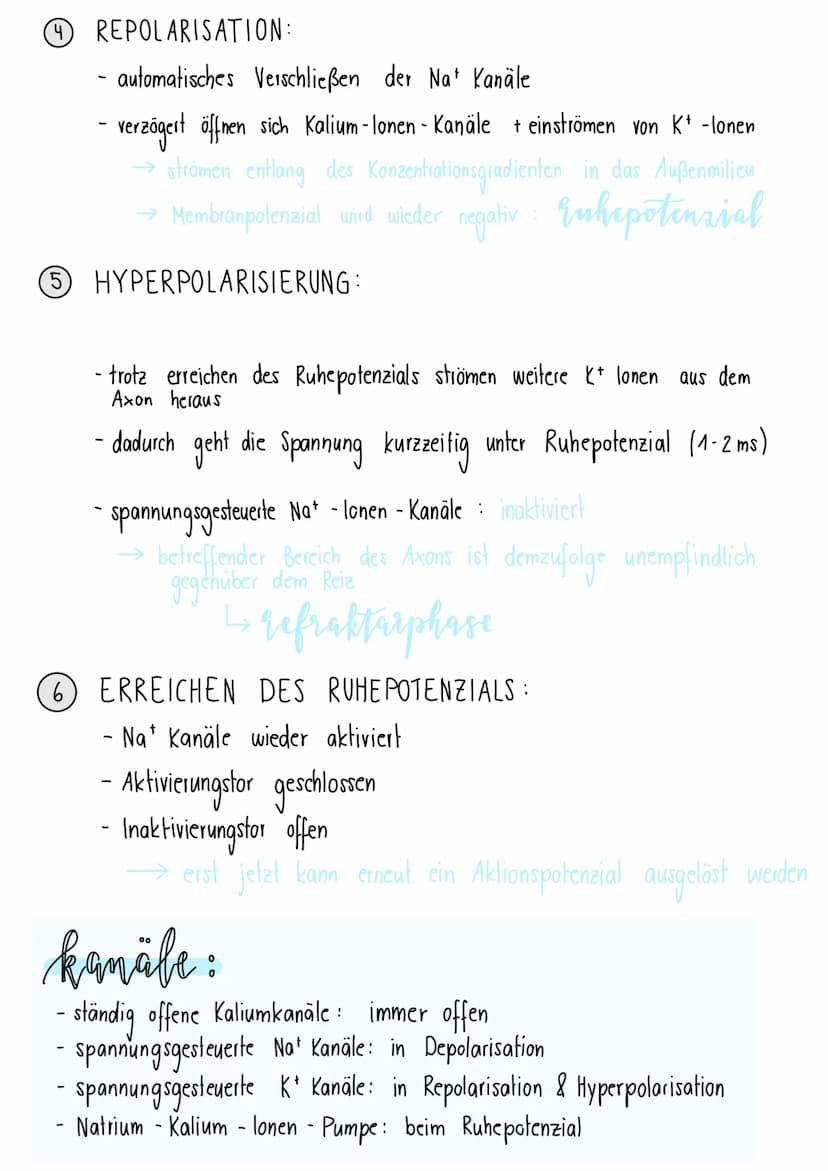 4 REPOLARISATION:
- automatisches Verschließen der Na⁺ Kanäle
- verzögert öffnen sich Kalium-Ionen-Kanäle + einströmen von K⁺-Ionen
→ strömen entlang des Konzentrationsgradienten in das Außenmilieu
→ Membranpotenzial wird wieder negativ: Ruhepotenzial
5 HYPERPOLARISIERUNG:
- trotz erreichen des Ruhepotenzials strömen weitere K⁺ Ionen aus dem
Axon heraus
- dadurch geht die Spannung kurzzeitig unter Ruhepotenzial (1-2 ms)
- spannungsgesteuerte Na⁺-Ionen-Kanäle: inaktiviert
→ betreffender Bereich des Axons ist demzufolge unempfindlich
gegenüber dem Reiz
↳ Refraktärphase
6 ERREICHEN DES RUHEPOTENZIALS:
- Na⁺ Kanäle wieder aktiviert
- Aktivierungstor geschlossen
- Inaktivierungstor offen
→ erst jetzt kann erneut ein Aktionspotenzial ausgelöst werden
kanäle:
- ständig offene Kaliumkanäle: immer offen
- spannungsgesteuerte Na⁺ Kanäle: in Depolarisation
- spannungsgesteuerte K⁺ Kanäle: in Repolarisation & Hyperpolarisation
- Natrium-Kalium-Ionen-Pumpe: beim Ruhepotenzial